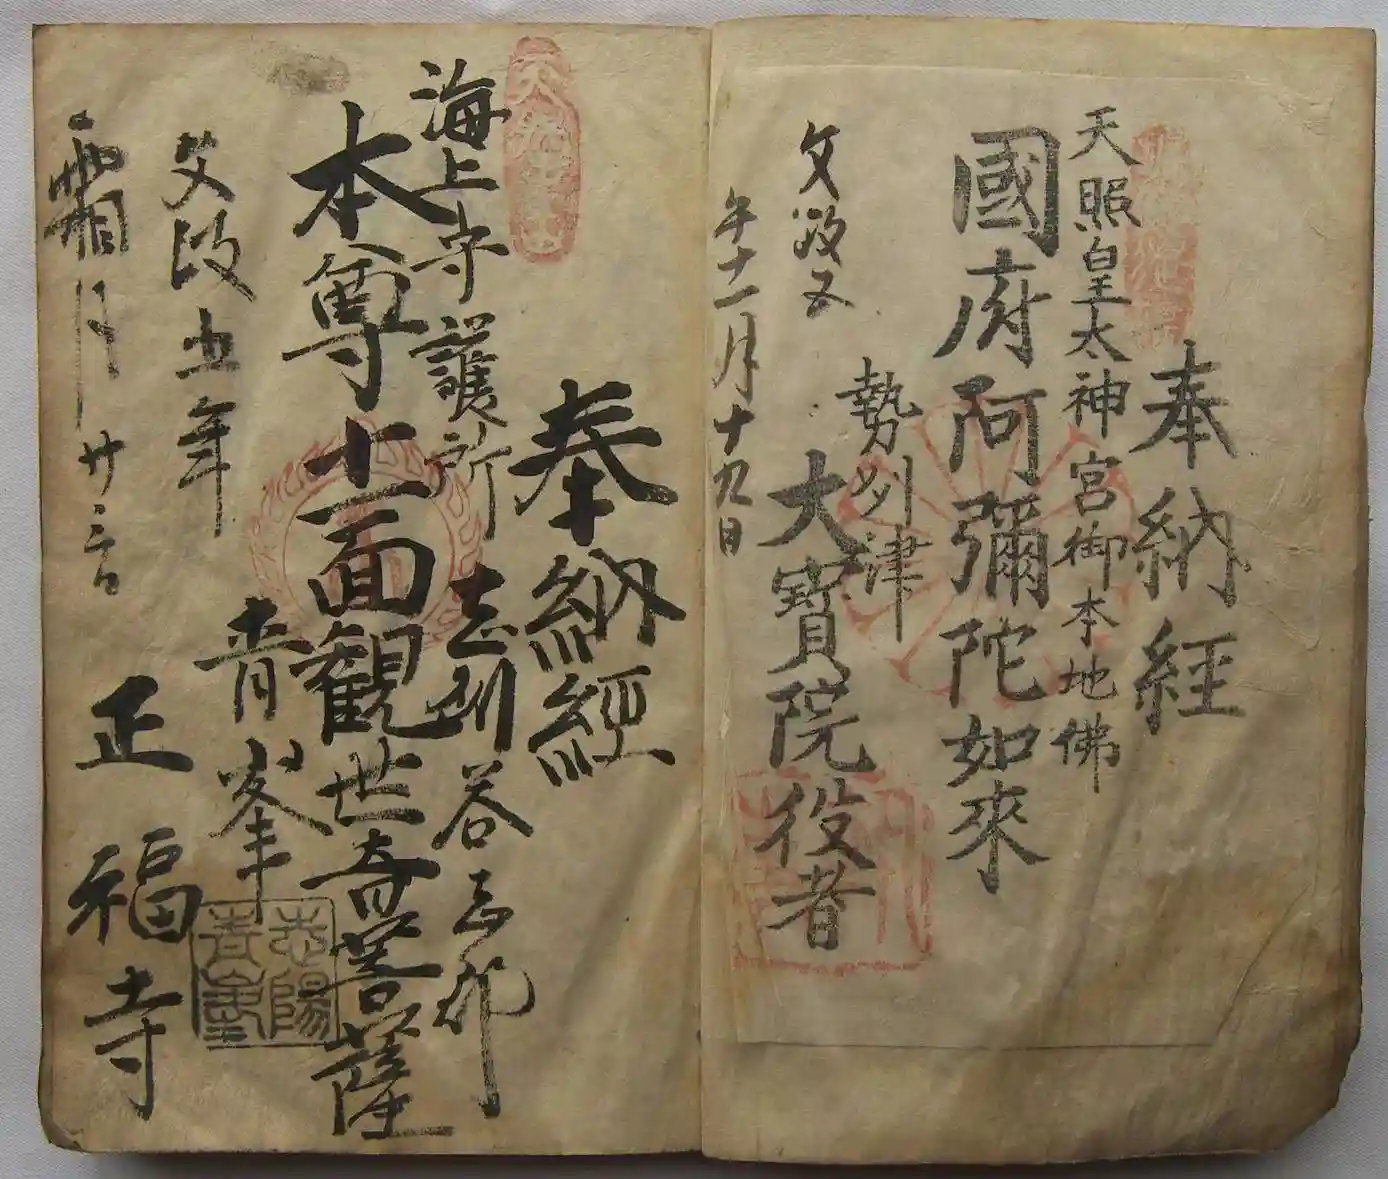 奉納経
天照皇太神宮御本地佛
國府阿彌陀如來
勢州津
大寶院役者
文政五
午十一月十九日
奉納經
志州荅志郡
海上守護所
本尊十一面観世音菩薩
青峯
文政五年
霜月廿三日
正福寺
志陽
青峯